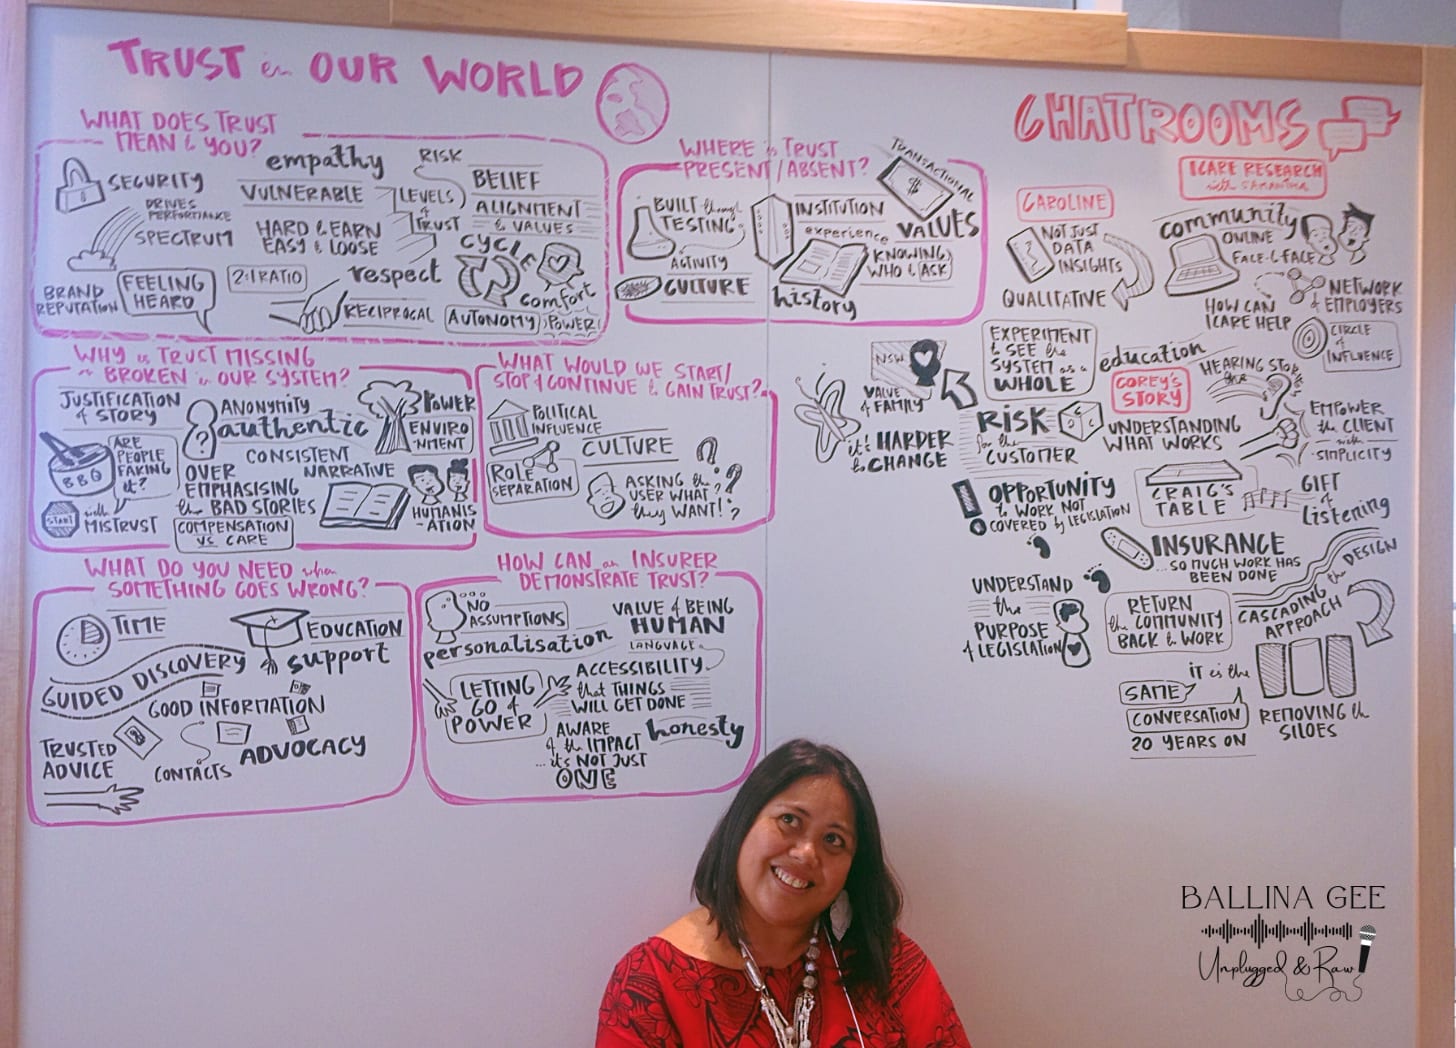 TRUST in OUR WORLD
WHAT DOES TRUST
MEAN & YOU?
SECURITY
DRIVES
PERFORMANCE
SPECTRUM
BRAND
REPUTATION
FEELING
HEARD
empathy
VULNERABLE
HARD & EARN
EASY & LOOSE
2:1 RATIO
respect
RECIPROCAL
RISK
LEVELS
of
TRUST
BELIEF
ALIGNMENT
& VALUES
CYCLE
comfort
AUTONOMY
POWER!
WHERE is TRUST
PRESENT/ABSENT?
BUILT through
TESTING
ACTIVITY
CULTURE
INSTITUTION
experience
history
TRANSACTIONAL
$
VALUES
KNOWING
WHO & ASK
WHY is TRUST MISSING
or BROKEN in OUR SYSTEM?
JUSTIFICATION
of STORY
BBQ
ARE
PEOPLE
FAKING
it?
START
with
MISTRUST
?
ANONYMITY
authentic
CONSISTENT
NARRATIVE
OVER
EMPHASISING
the BAD STORIES
COMPENSATION
VS CARE
POWER
ENVIRO
-NMENT
HUMANIS
-ATION
WHAT WOULD WE START/
STOP & CONTINUE & GAIN TRUST?
POLITICAL
INFLUENCE
ROLE
SEPARATION
CULTURE
ASKING the
USER WHAT
they WANT!
WHAT DO YOU NEED when
SOMETHING GOES WRONG?
TIME
EDUCATION
support
GUIDED DISCOVERY
GOOD INFORMATION
TRUSTED
ADVICE
CONTACTS
ADVOCACY
HOW CAN an INSURER
DEMONSTRATE TRUST?
NO
ASSUMPTIONS
personalisation
LETTING
GO of
POWER
VALUE of BEING
HUMAN
LANGUAGE
ACCESSIBILITY
that THINGS
WILL GET DONE
AWARE
of the IMPACT
...it's NOT JUST
ONE
honesty
CHATROOMS
ICARE RESEARCH
with SAMANTHA
CAROLINE
NOT JUST
DATA
INSIGHTS
QUALITATIVE
community
ONLINE
FACE-&-FACE
HOW CAN
ICARE HELP
NETWORK
of EMPLOYERS
CIRCLE
of
INFLUENCE
EXPERIMENT
& SEE the
SYSTEM as a
WHOLE
NSW
VALUE
of FAMILY
it's HARDER
& CHANGE
education
COREY'S
STORY
HEARING
the
RISK
for the
CUSTOMER
UNDERSTANDING
WHAT WORKS
EMPOWER
the CLIENT
with
SIMPLICITY
OPPORTUNITY
& WORK NOT
COVERED by LEGISLATION
CRAIG'S
TABLE
GIFT
of
Listening
INSURANCE
...SO MUCH WORK HAS
BEEN DONE
UNDERSTAND
the
PURPOSE
of LEGISLATION
RETURN
the COMMUNITY
BACK & WORK
CASCADING the DESIGN
APPROACH
IT is the
SAME
CONVERSATION
20 YEARS ON
REMOVING the
SILOES
BALLINA GEE
Unplugged & Raw